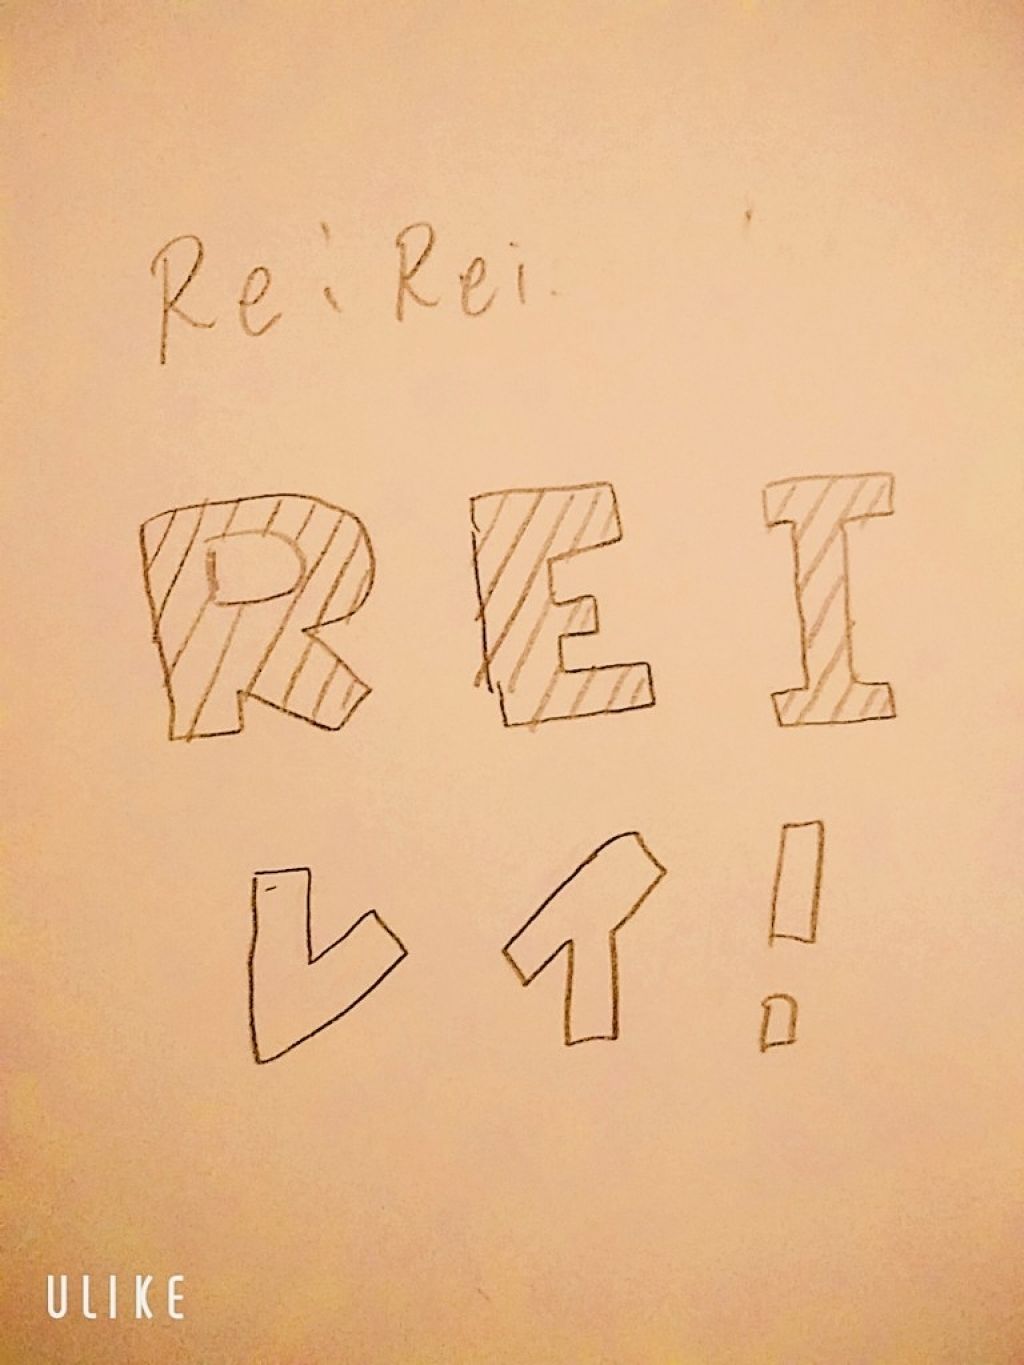 Rei Rei.
REI
レイ!
ULIKE